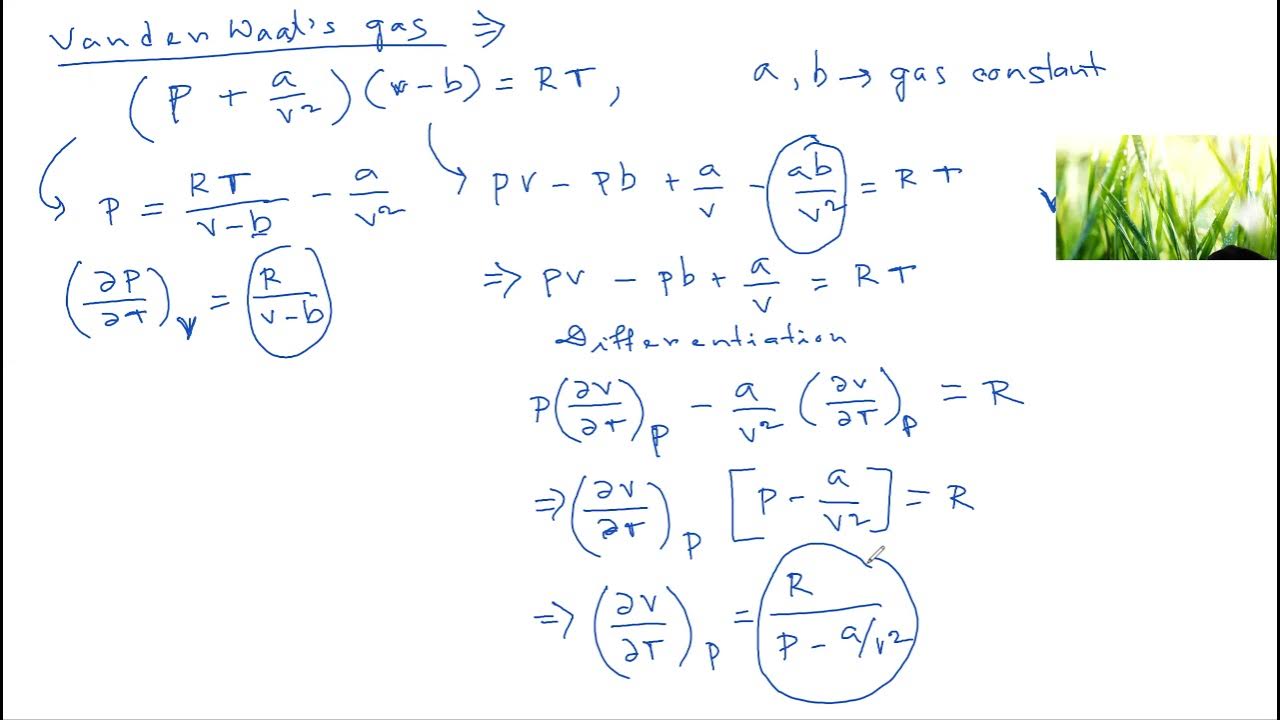 Vander Waal's gas ⇒
(P + a/v²)(v - b) = RT, a, b → gas constant
P = RT/(v-b) - a/v²
(∂P/∂T)_V = R/(v-b)
PV - Pb + a/v - ab/v² = RT
⇒ PV - Pb + a/v = RT
Differentiation
P(∂V/∂T)_P - a/v² (∂V/∂T)_P = R
⇒ (∂V/∂T)_P [P - a/v²] = R
⇒ (∂V/∂T)_P = R/(P - a/v²)